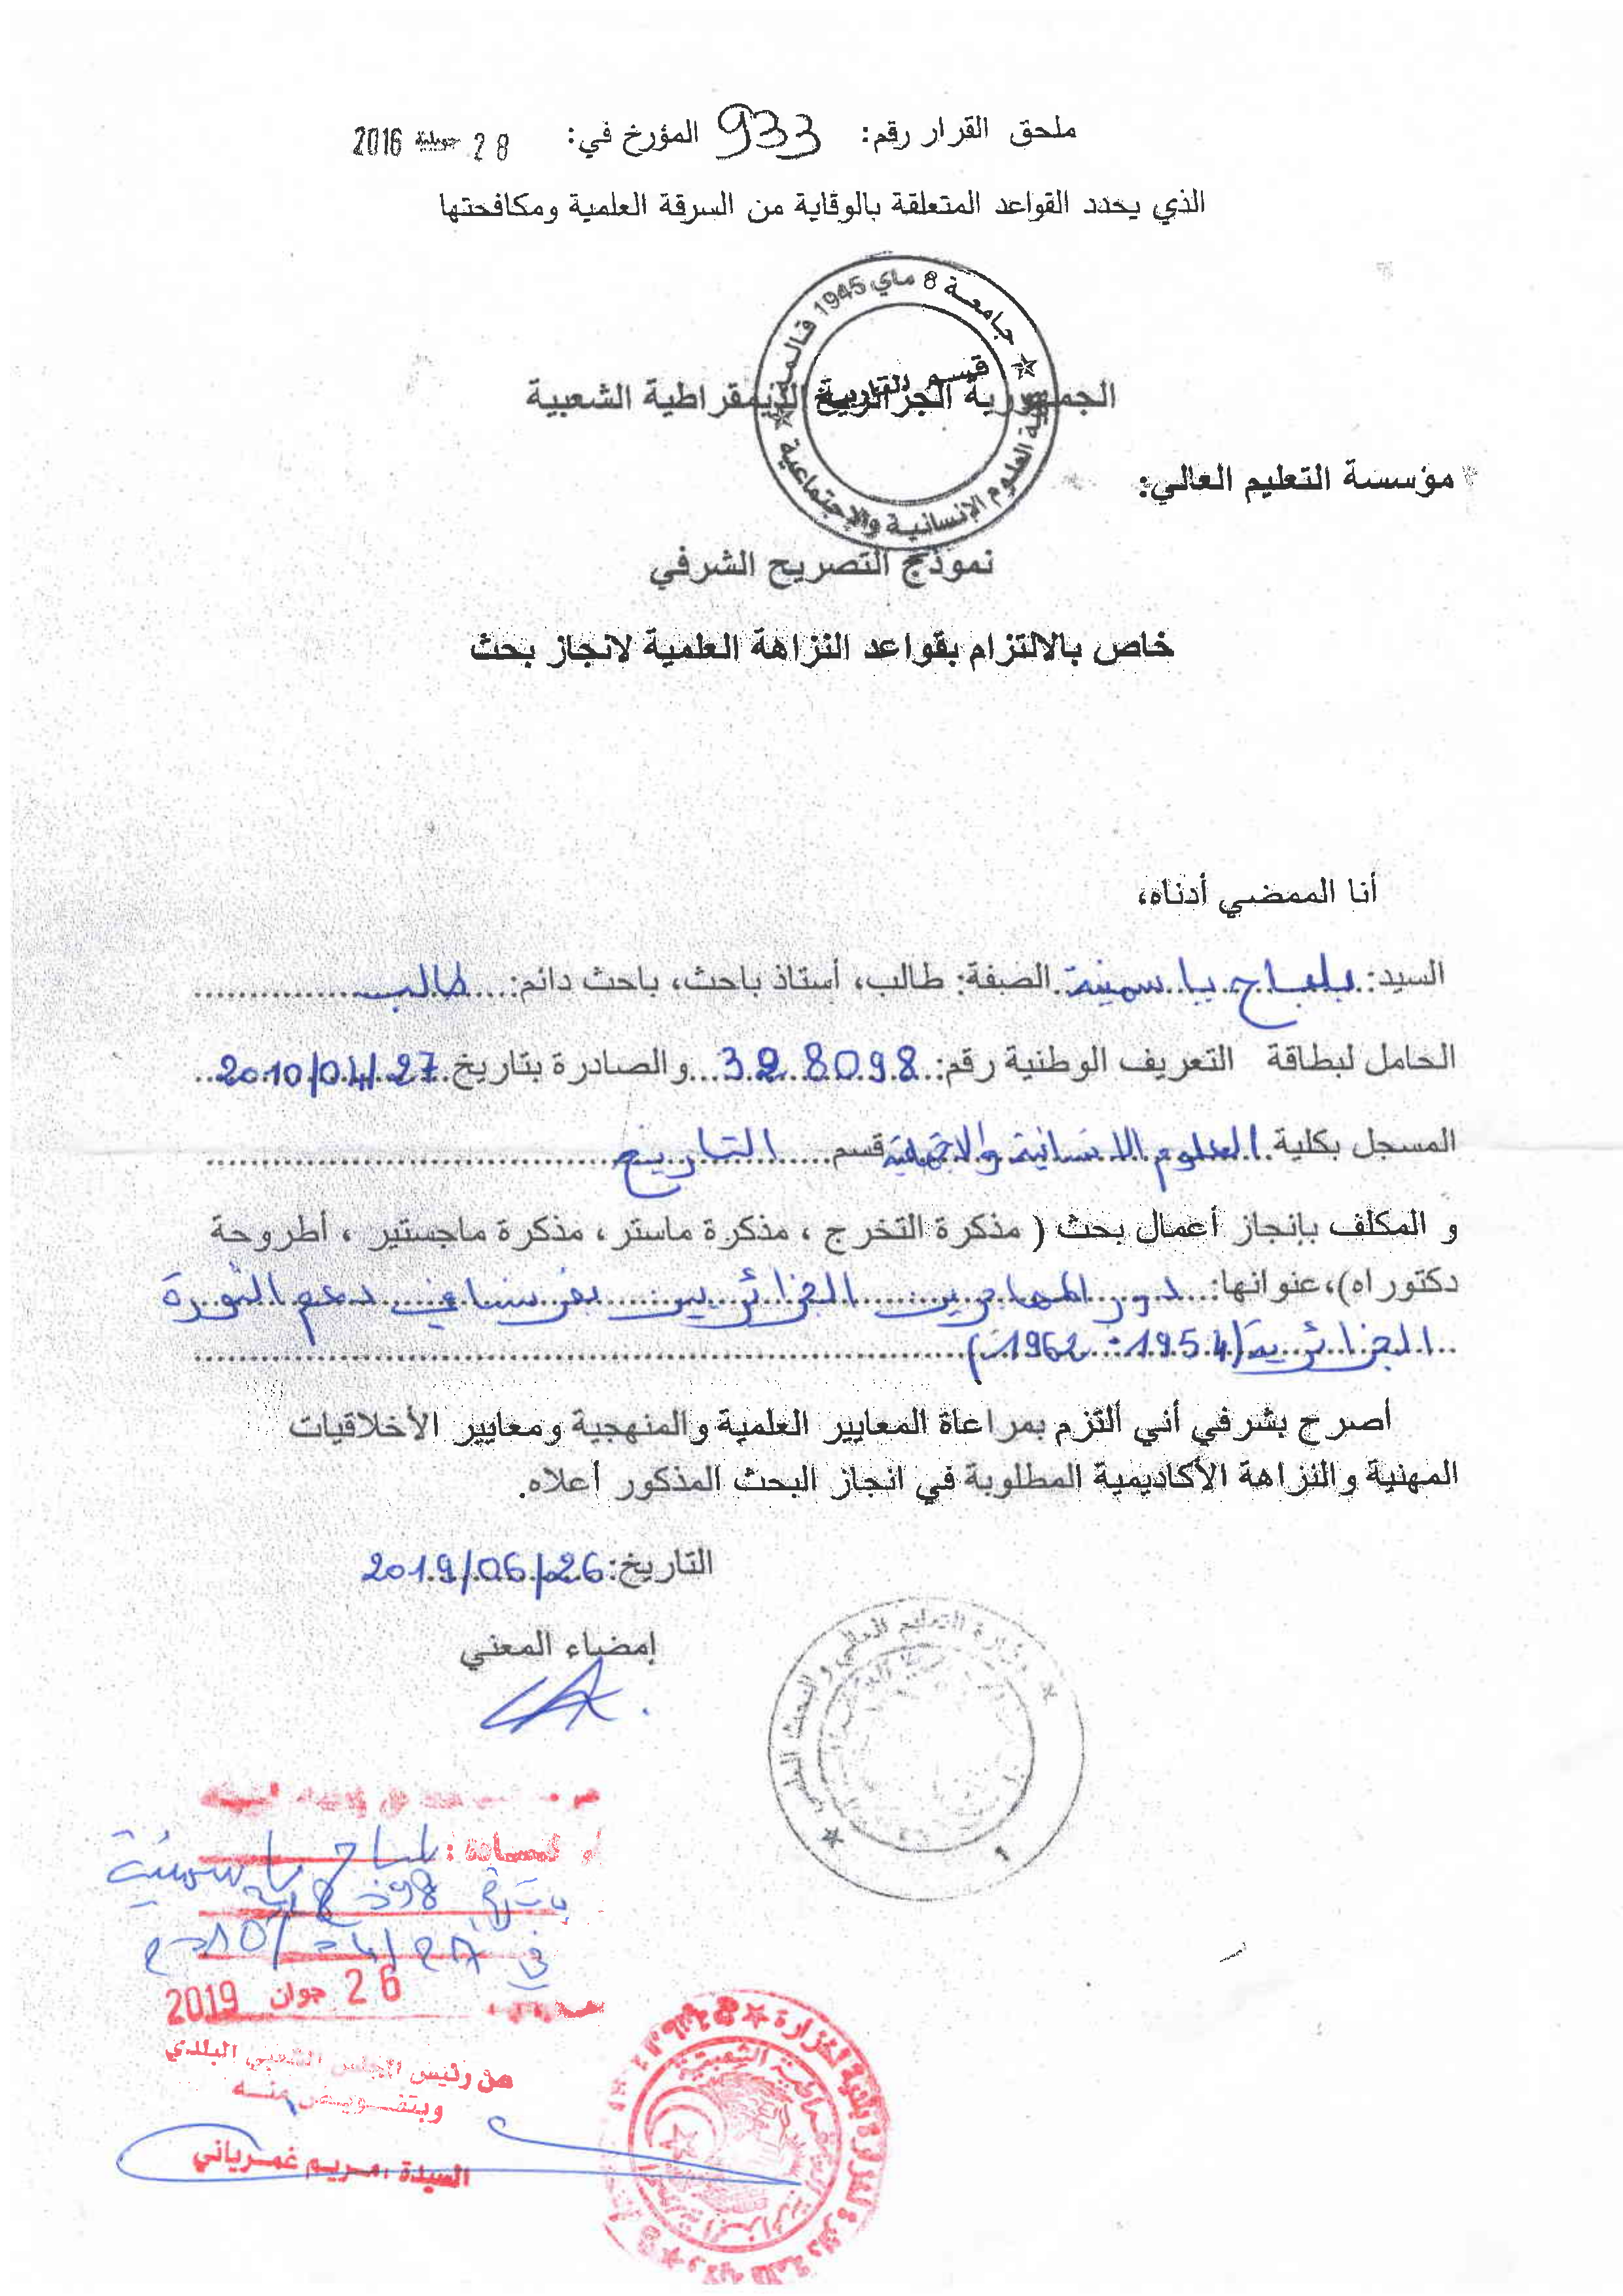 ملحق القرار رقم: 933 المؤرخ في: 28 جويلية 2016
الذي يحدد القواعد المتعلقة بالوقاية من السرقة العلمية ومكافحتها
جامعة 8 ماي 1945 قالمة
قسم التاريخ
كلية العلوم الإنسانية والإجتماعية
الجمهورية الجزائرية الديمقراطية الشعبية
مؤسسة التعليم العالي:
نموذج التصريح الشرفي
خاص بالالتزام بقواعد النزاهة العلمية لانجاز بحث
أنا الممضي أدناه،
السيد: بلعاج ياسمينة الصفة: طالب، أستاذ باحث، باحث دائم: طالب
الحامل لبطاقة التعريف الوطنية رقم: 328098 والصادرة بتاريخ 27/04/2010
المسجل بكلية العلوم الانسانية والاجتماعية قسم التاريخ
و المكلف بإنجاز أعمال بحث ( مذكرة التخرج ، مذكرة ماستر، مذكرة ماجستير ، أطروحة
دكتوراه)، عنوانها: دور المهاجرين الجزائريين بفرنسا في دعم الثورة
الجزائرية (1954-1962)
أصرح بشرفي أني ألتزم بمراعاة المعايير العلمية والمنهجية ومعايير الأخلاقيات
المهنية والنزاهة الأكاديمية المطلوبة في انجاز البحث المذكور أعلاه.
التاريخ: 26/06/2019
إمضاء المعني
وزارة التعليم العالي والبحث العلمي
ياسمينة
26 جوان 2019
عن رئيس المجلس الشعبي البلدي
وبتفويض منه
السيدة مريم غمرياني